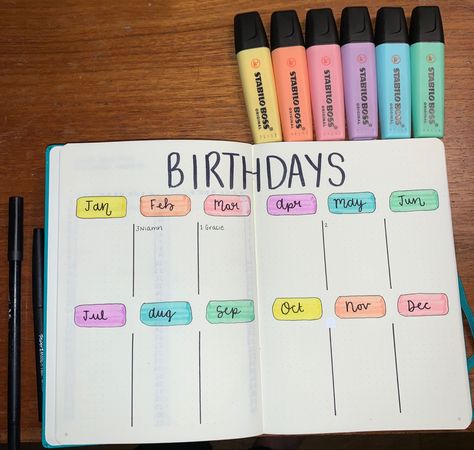 STABILO BOSS ORIGINAL
STABILO BOSS ORIGINAL
STABILO BOSS ORIGINAL
STABILO BOSS ORIGINAL
STABILO BOSS ORIGINAL
STABILO BOSS ORIGINAL
BIRTHDAYS
Jan Feb Mar apr May Jun
3 Niamh 1 Gracie 2
Jul aug Sep Oct Nov Dec